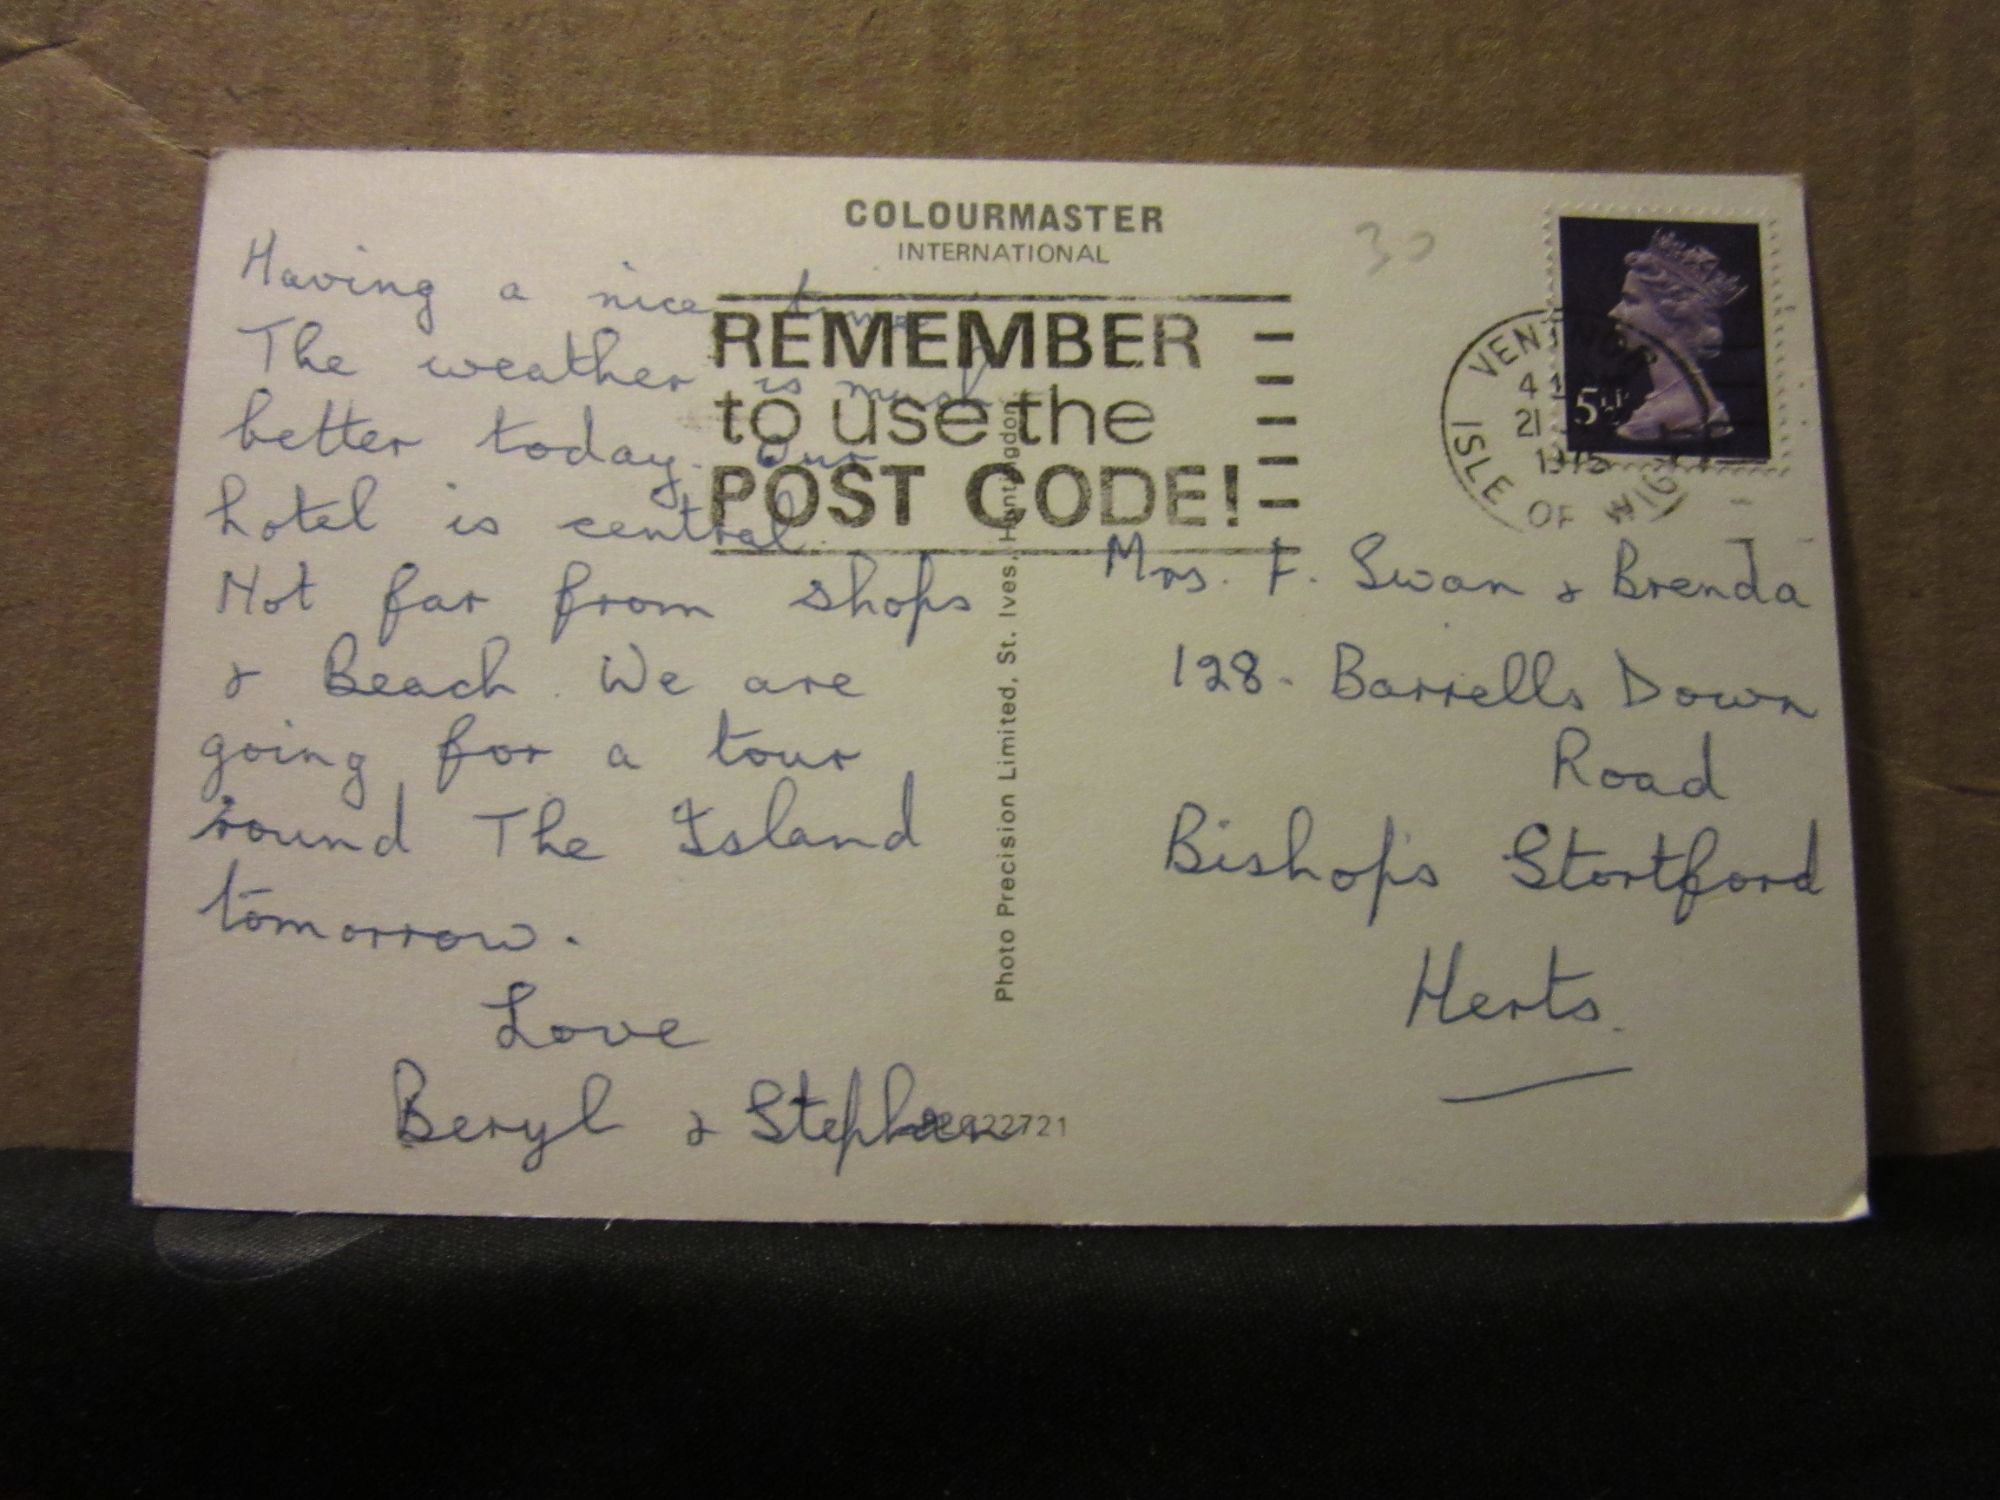 COLOURMASTER
INTERNATIONAL
30
Having a nice time
The weather is much
better today. Our
hotel is central.
Not far from shops
& Beach. We are
going for a tour
round The Island
tomorrow.
Love
Beryl & Stephen
REMEMBER
to use the
POST CODE!
Photo Precision Limited, St. Ives, Huntingdon
22721
VENTNOR
4
21
1975
ISLE OF WIGHT
5½P
Mrs. F. Swan & Brenda
128. Barrells Down
Road
Bishop's Stortford
Herts.